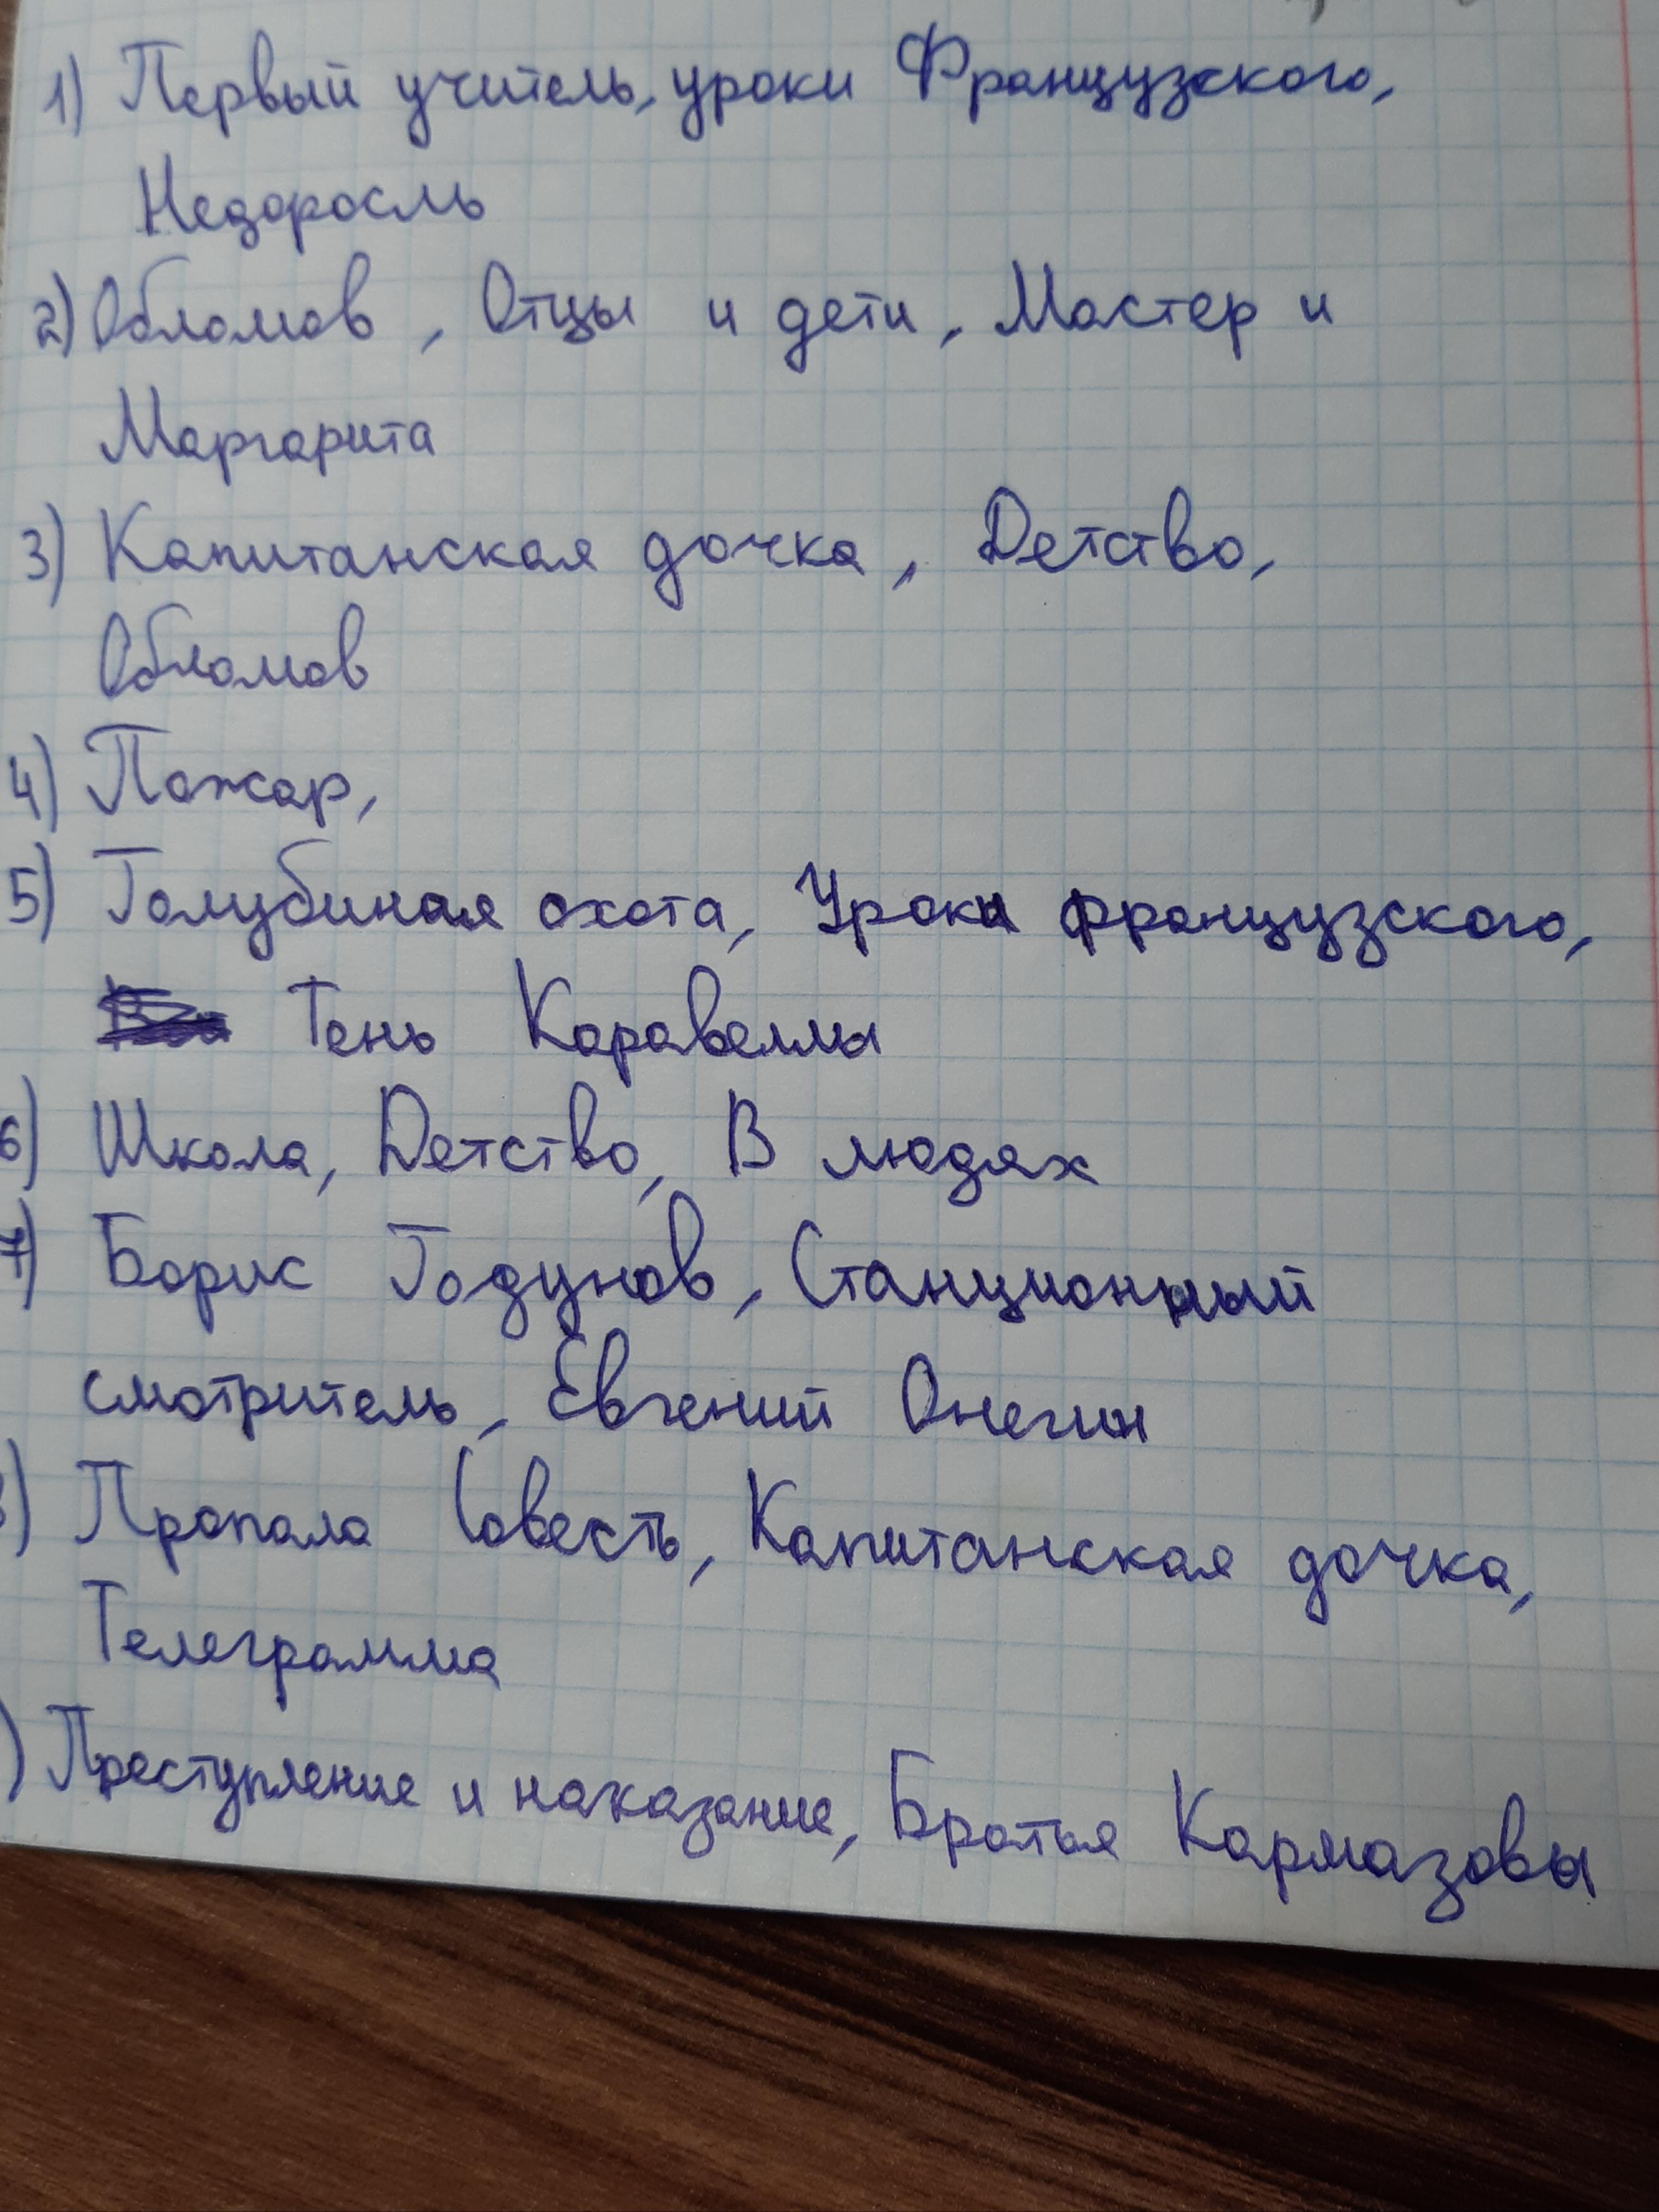 1) Первый учитель, уроки Французского,
Недоросль
2) Обломов, Отцы и дети, Мастер и
Маргарита
3) Капитанская дочка, Детство,
Обломов
4) Пожар,
5) Голубиная охота, Уроки французского,
Тень Каравеллы
6) Школа, Детство, В людях
7) Борис Годунов, Станционный
смотритель, Евгений Онегин
) Пропала Совесть, Капитанская дочка,
Телеграмма
) Преступление и наказание, Братья Кармазовы